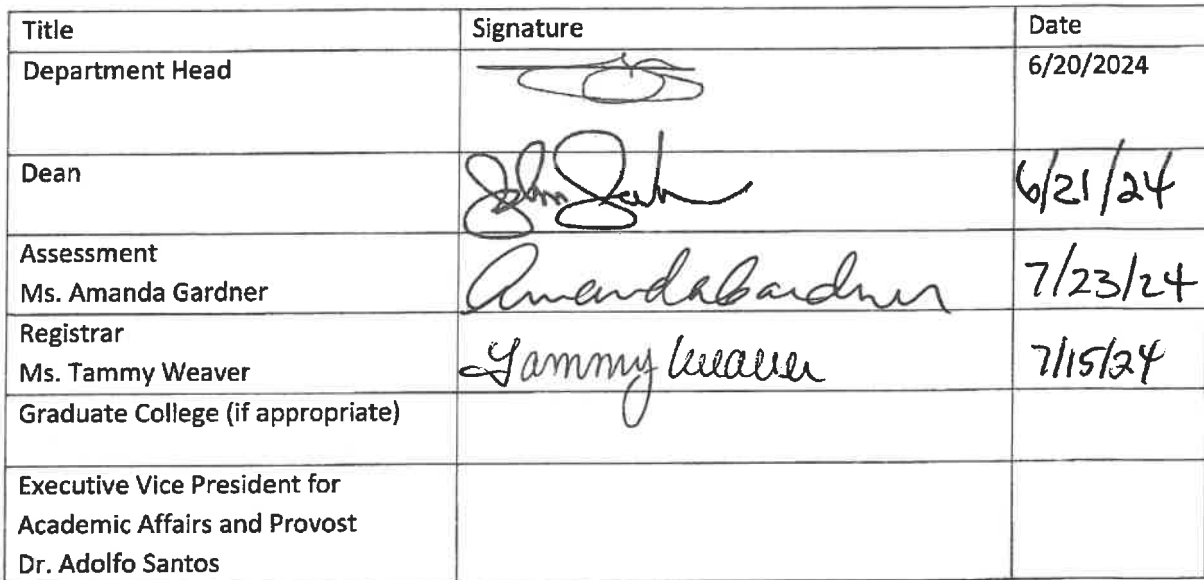 Title Signature Date
Department Head 6/20/2024
Dean John 6/21/24
Assessment
Ms. Amanda Gardner Amanda Gardner 7/23/24
Registrar
Ms. Tammy Weaver Tammy Weaver 7/15/24
Graduate College (if appropriate)
Executive Vice President for
Academic Affairs and Provost
Dr. Adolfo Santos